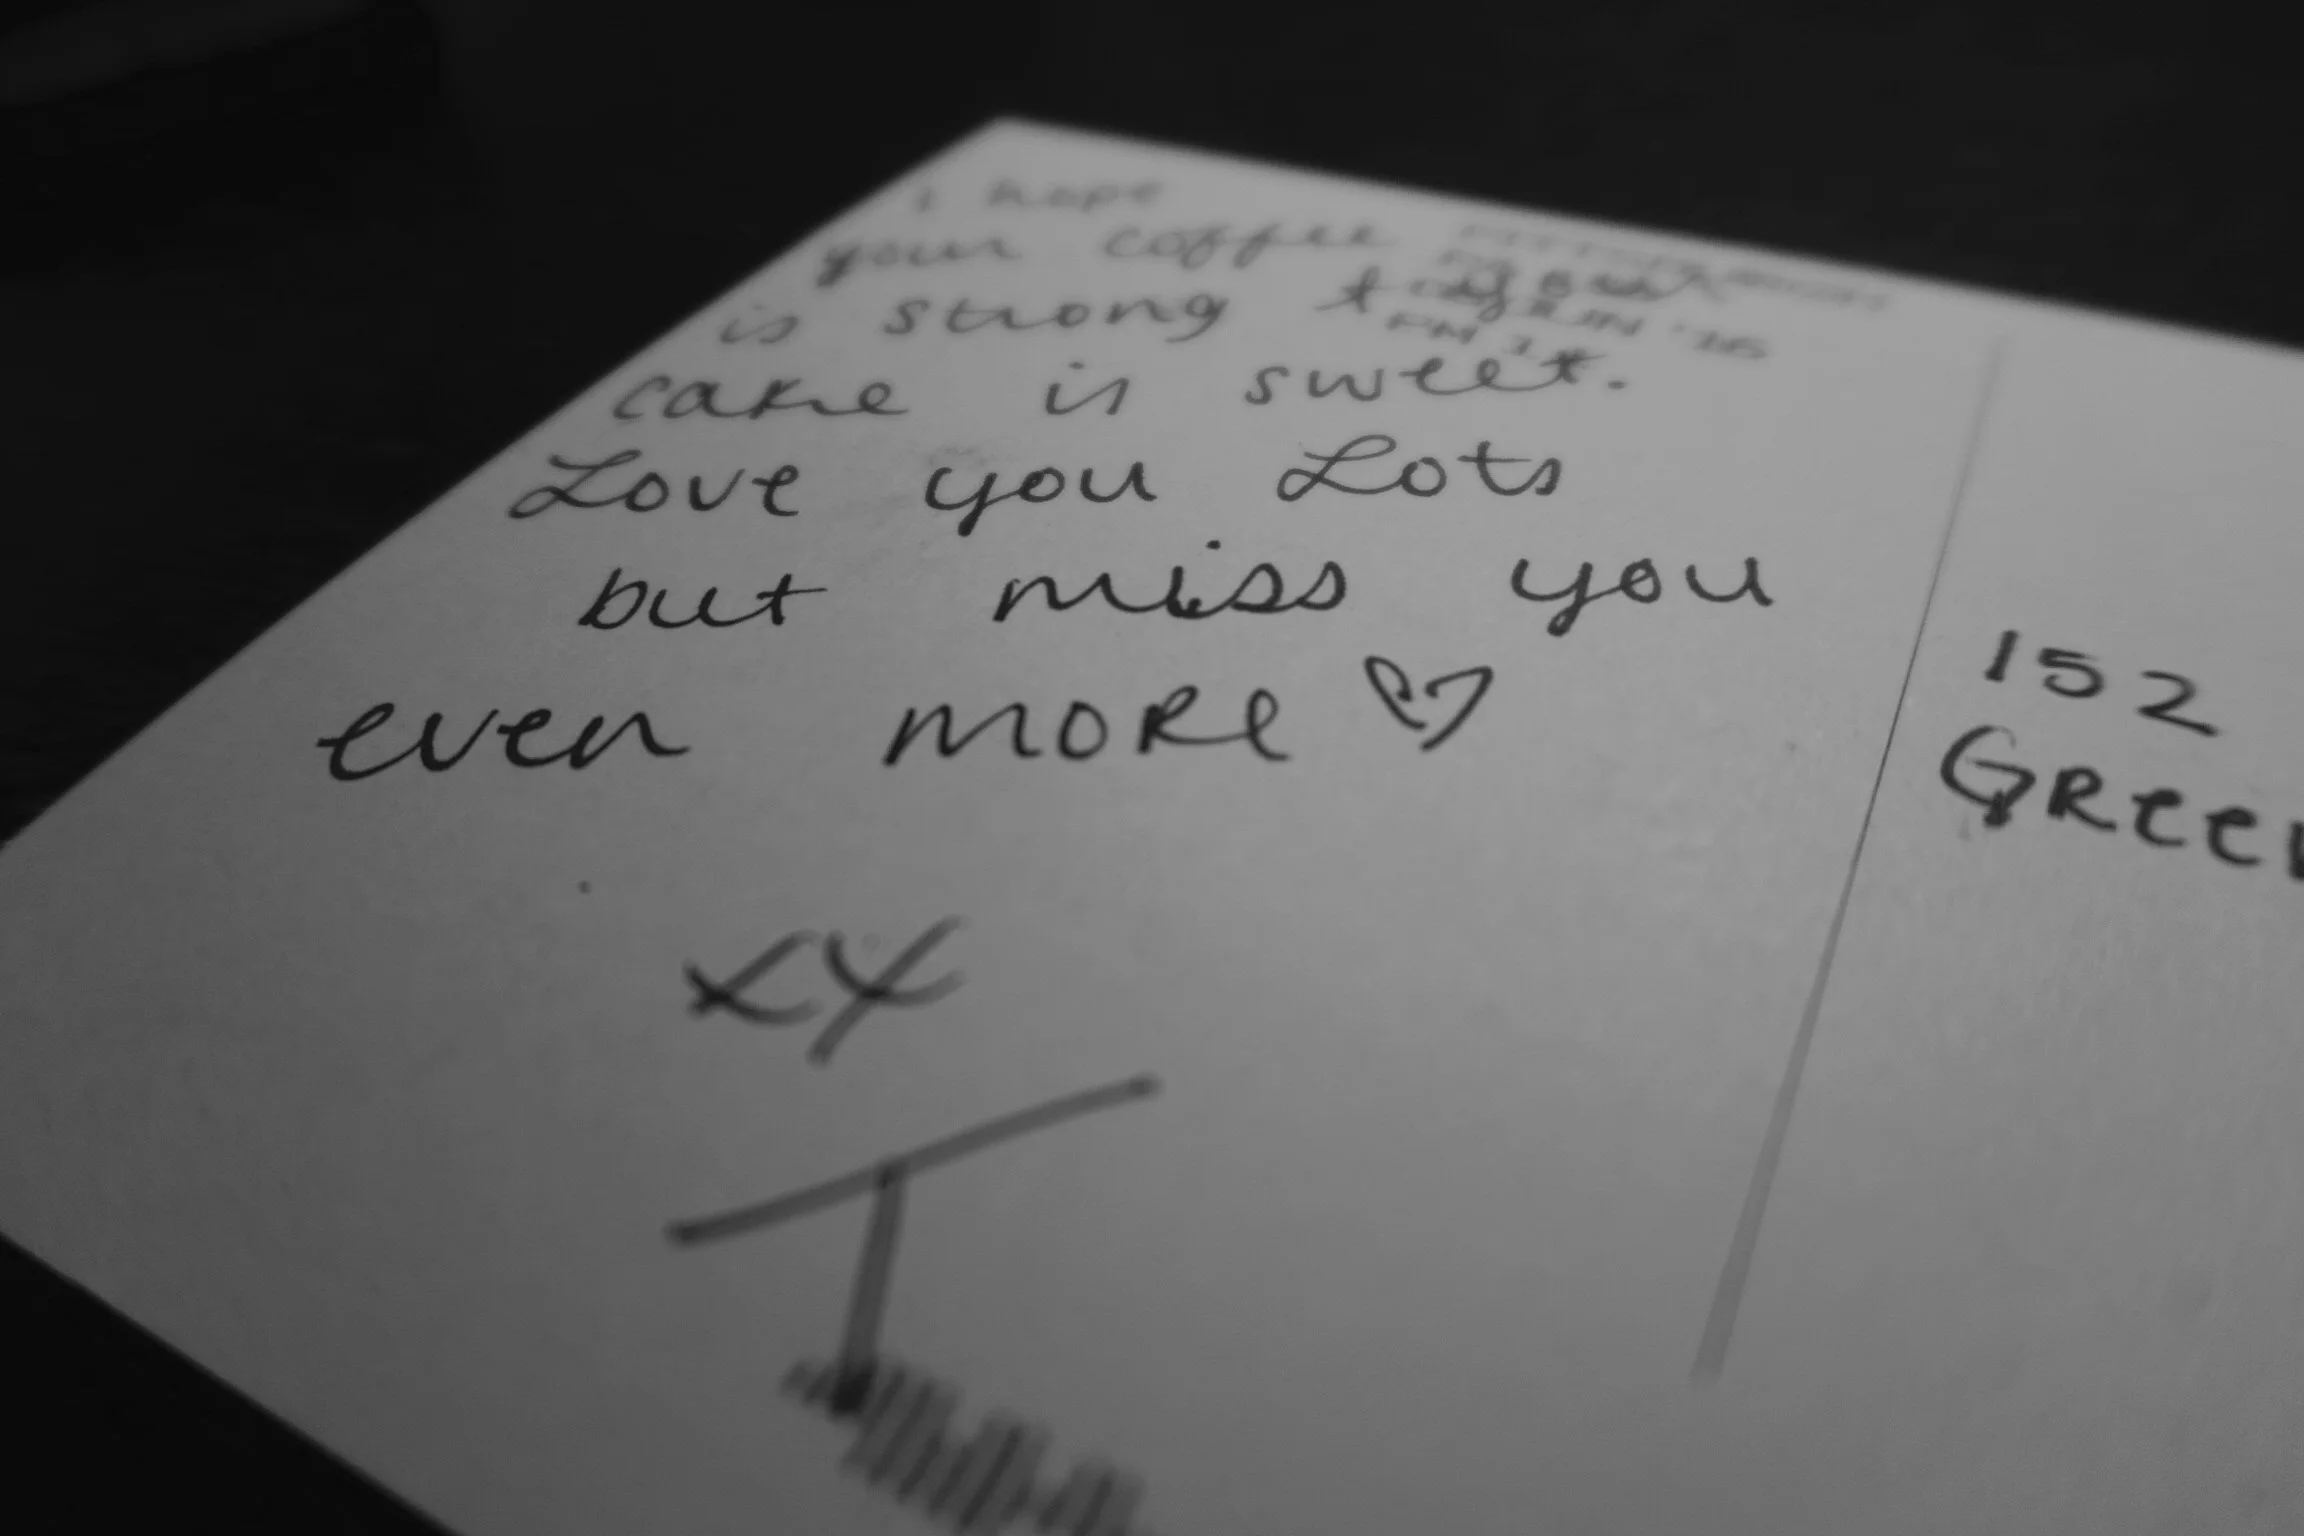 i hope
your coffee
is strong & your
cake is sweet.
Love you Lots
but miss you
even more ♡
xx
T
PM 1
JUN '16
152
Gree